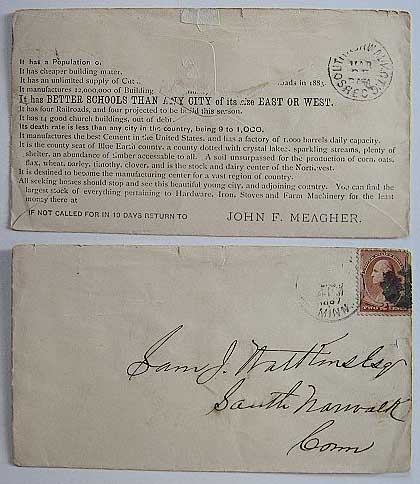 It has a Population of
It has cheaper building mater
It has an unlimited supply of Cut roads in 1883.
It manufactures 12,000,000 of Building
It has BETTER SCHOOLS THAN ANY CITY of its size EAST OR WEST.
It has four Railroads, and four projected to be build this season.
It has 14 good church buildings, out of debt.
Its death rate is less than any city in the country, being 9 to 1,000.
It manufactures the best Cement in the United States, and has a factory of 1,000 barrels daily capacity.
It is the county seat of Blue Earth county, a county dotted with crystal lakes, sparkling streams, plenty of
shelter, an abundance of timber accessable to all. A soil unsurpassed for the production of corn, oats,
flax, wheat, barley, timothy, clover, and is the stock and dairy center of the Northwest.
It is destined to become the manufacturing center for a vast region of country.
All seeking homes should stop and see this beautiful young city, and adjoining country. You can find the
largest stock of everything pertaining to Hardware, Iron, Stoves and Farm Machinery for the least
money there at
IF NOT CALLED FOR IN 10 DAYS RETURN TO JOHN F. MEAGHER.
SOUTH NORWALK CONN
MAR
REC'D
1887
MINN.
TWO CENTS
Sam J. Wattkins Esq
South Norwalk
Conn